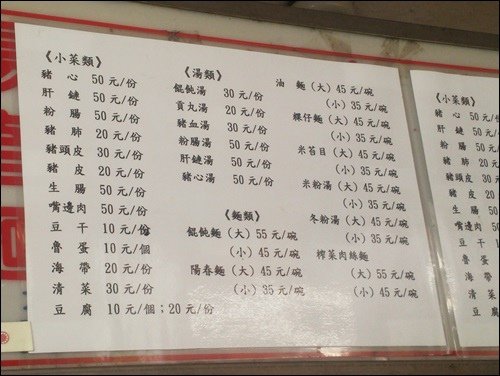 《小菜類》
豬 心 50 元/份
肝 鏈 50 元/份
粉 腸 50 元/份
豬 肺 20 元/份
豬頭皮 30 元/份
豬 皮 20 元/份
生 腸 50 元/份
嘴邊肉 50 元/份
豆 干 10 元/份
魯 蛋 10 元/個
海 帶 20 元/份
清 菜 30 元/份
豆 腐 10 元/個；20 元/份
《湯類》
餛飩湯 30 元/份
貢丸湯 20 元/份
豬血湯 30 元/份
粉腸湯 50 元/份
肝鏈湯 50 元/份
豬心湯 50 元/份
《麵類》
餛飩麵（大）55 元/碗
（小）45 元/碗
陽春麵（大）45 元/碗
（小）35 元/碗
油 麵（大）45 元/碗
（小）35 元/碗
粿仔麵（大）45 元/碗
（小）35 元/碗
米苔目（大）45 元/碗
（小）35 元/碗
米粉湯（大）45 元/碗
（小）35 元/碗
冬粉湯（大）45 元/碗
（小）35 元/碗
榨菜肉絲麵
（大）55 元/碗
（小）45 元/碗
《小菜類》
豬 心 50
肝 鏈 50
粉 腸 50
豬 肺 20
豬頭皮 30
豬 皮 20
生 腸 50
嘴邊肉 50
豆 干 10
魯 蛋 10
海 帶 20
清 菜 30
豆 腐 10